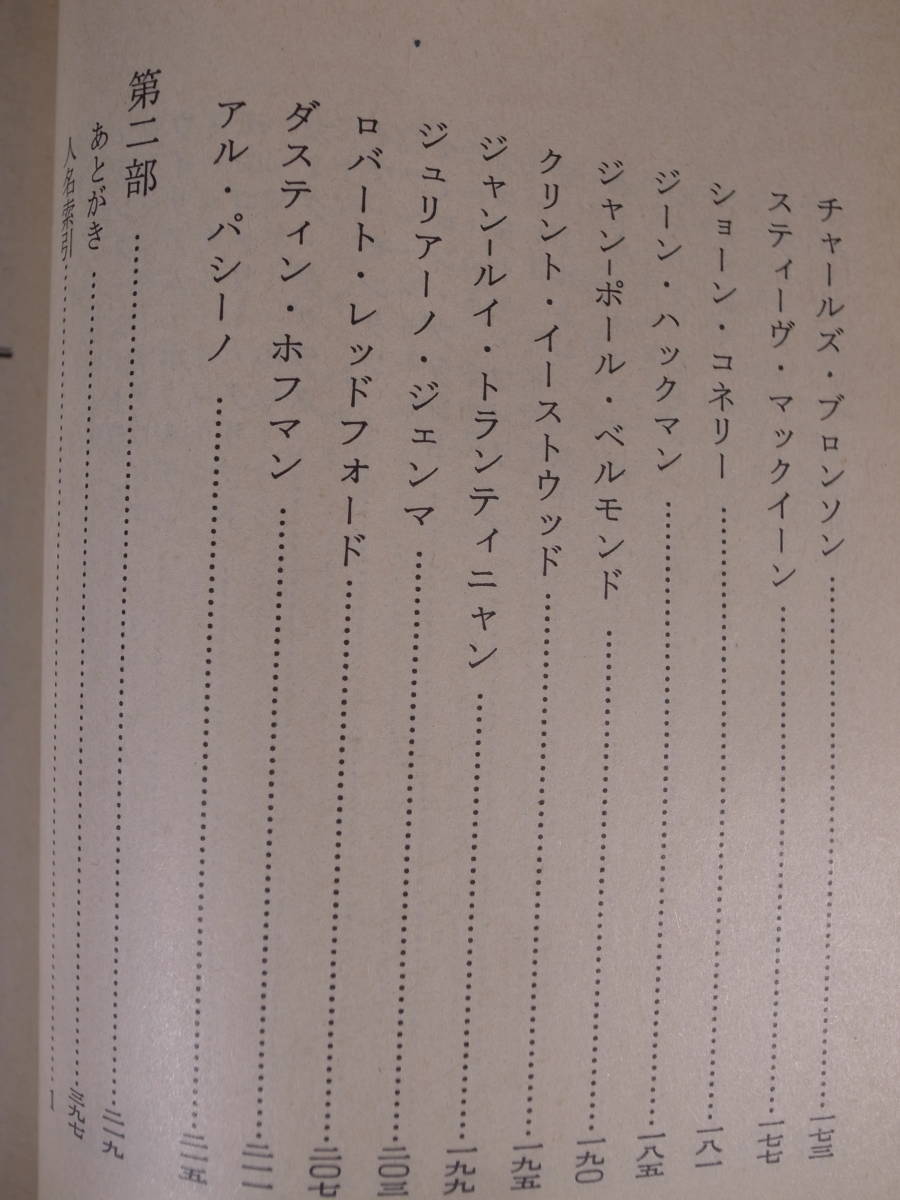 チャールズ・ブロンソン……一七三
スティーヴ・マックイーン……一七七
ショーン・コネリー……一八一
ジーン・ハックマン……一八五
ジャン=ポール・ベルモンド……一九〇
クリント・イーストウッド……一九五
ジャン=ルイ・トランティニャン……一九九
ジュリアーノ・ジェンマ……二〇三
ロバート・レッドフォード……二〇七
ダスティン・ホフマン……二一一
アル・パシーノ……二一五
第二部……二一九
あとがき……三九七
人名索引……1